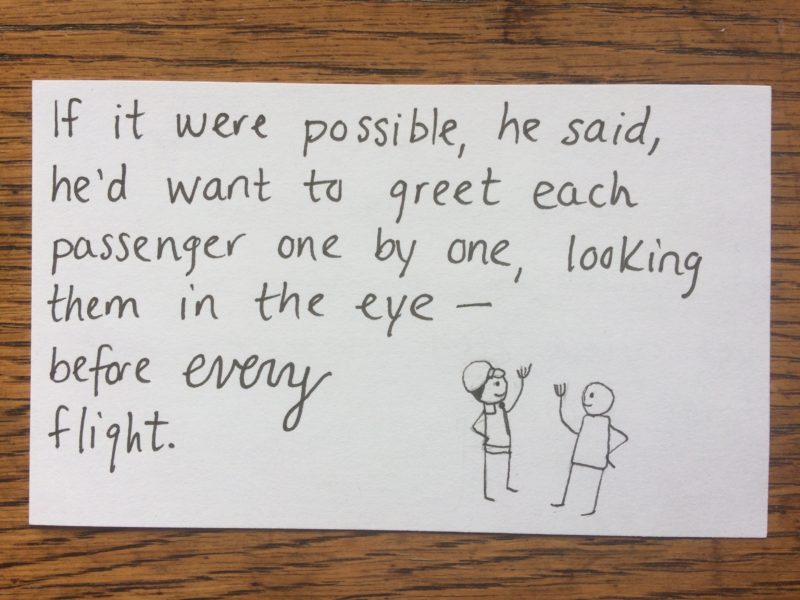 If it were possible, he said,
he'd want to greet each
passenger one by one, looking
them in the eye —
before every
flight.